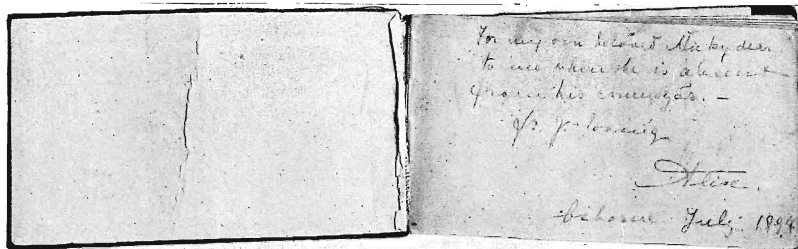 For my own beloved Nicky dear
to use when he is absent
from his
fr. yr. loving
Alix.
Osborne July 1894